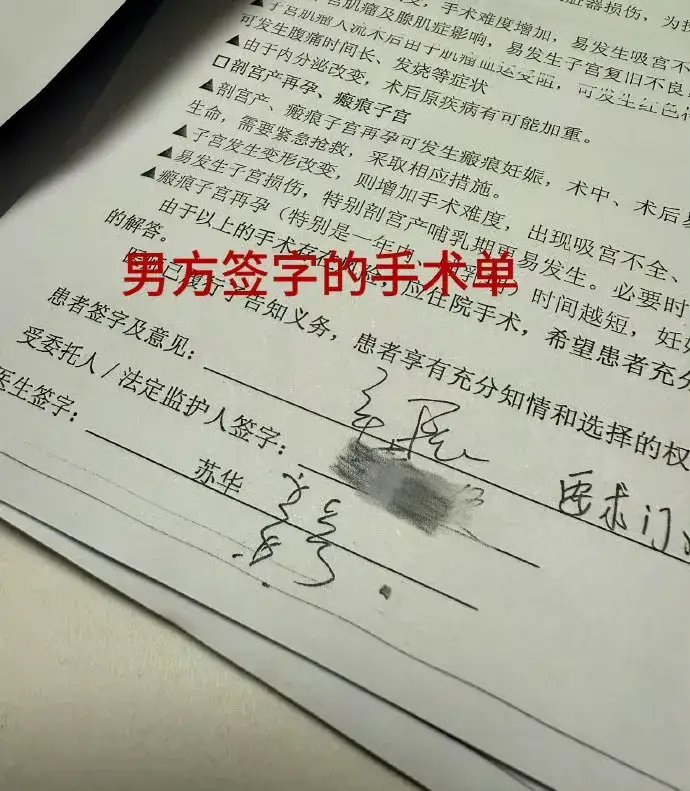 脏器损伤，为
▲子宫肌瘤及腺肌症影响，手术难度增加，易发生吸宫不
宫肌瘤人流术后由于肌瘤血运受阻，可发生红色
可发生腹痛时间长、发烧等症状
▲由于内分泌改变，术后原疾病有可能加重。
□剖宫产再孕、瘢痕子宫
▲剖宫产、瘢痕子宫再孕可发生瘢痕妊娠，术中、术后
生命，需要紧急抢救，采取相应措施。
▲子宫发生变形改变，则增加手术难度，出现吸宫不全、
▲易发生子宫损伤，特别剖宫产哺乳期更易发生。必要时
▲瘢痕子宫再孕（特别是一年内、乳）时间越短，妊
由于以上的手术存在风险，应住院手术，希望患者充分
的解答。
男方签字的手术单
已履行了告知义务，患者享有充分知情和选择的权
患者签字及意见：
要求门
受委托人/法定监护人签字：
医生签字：
苏华